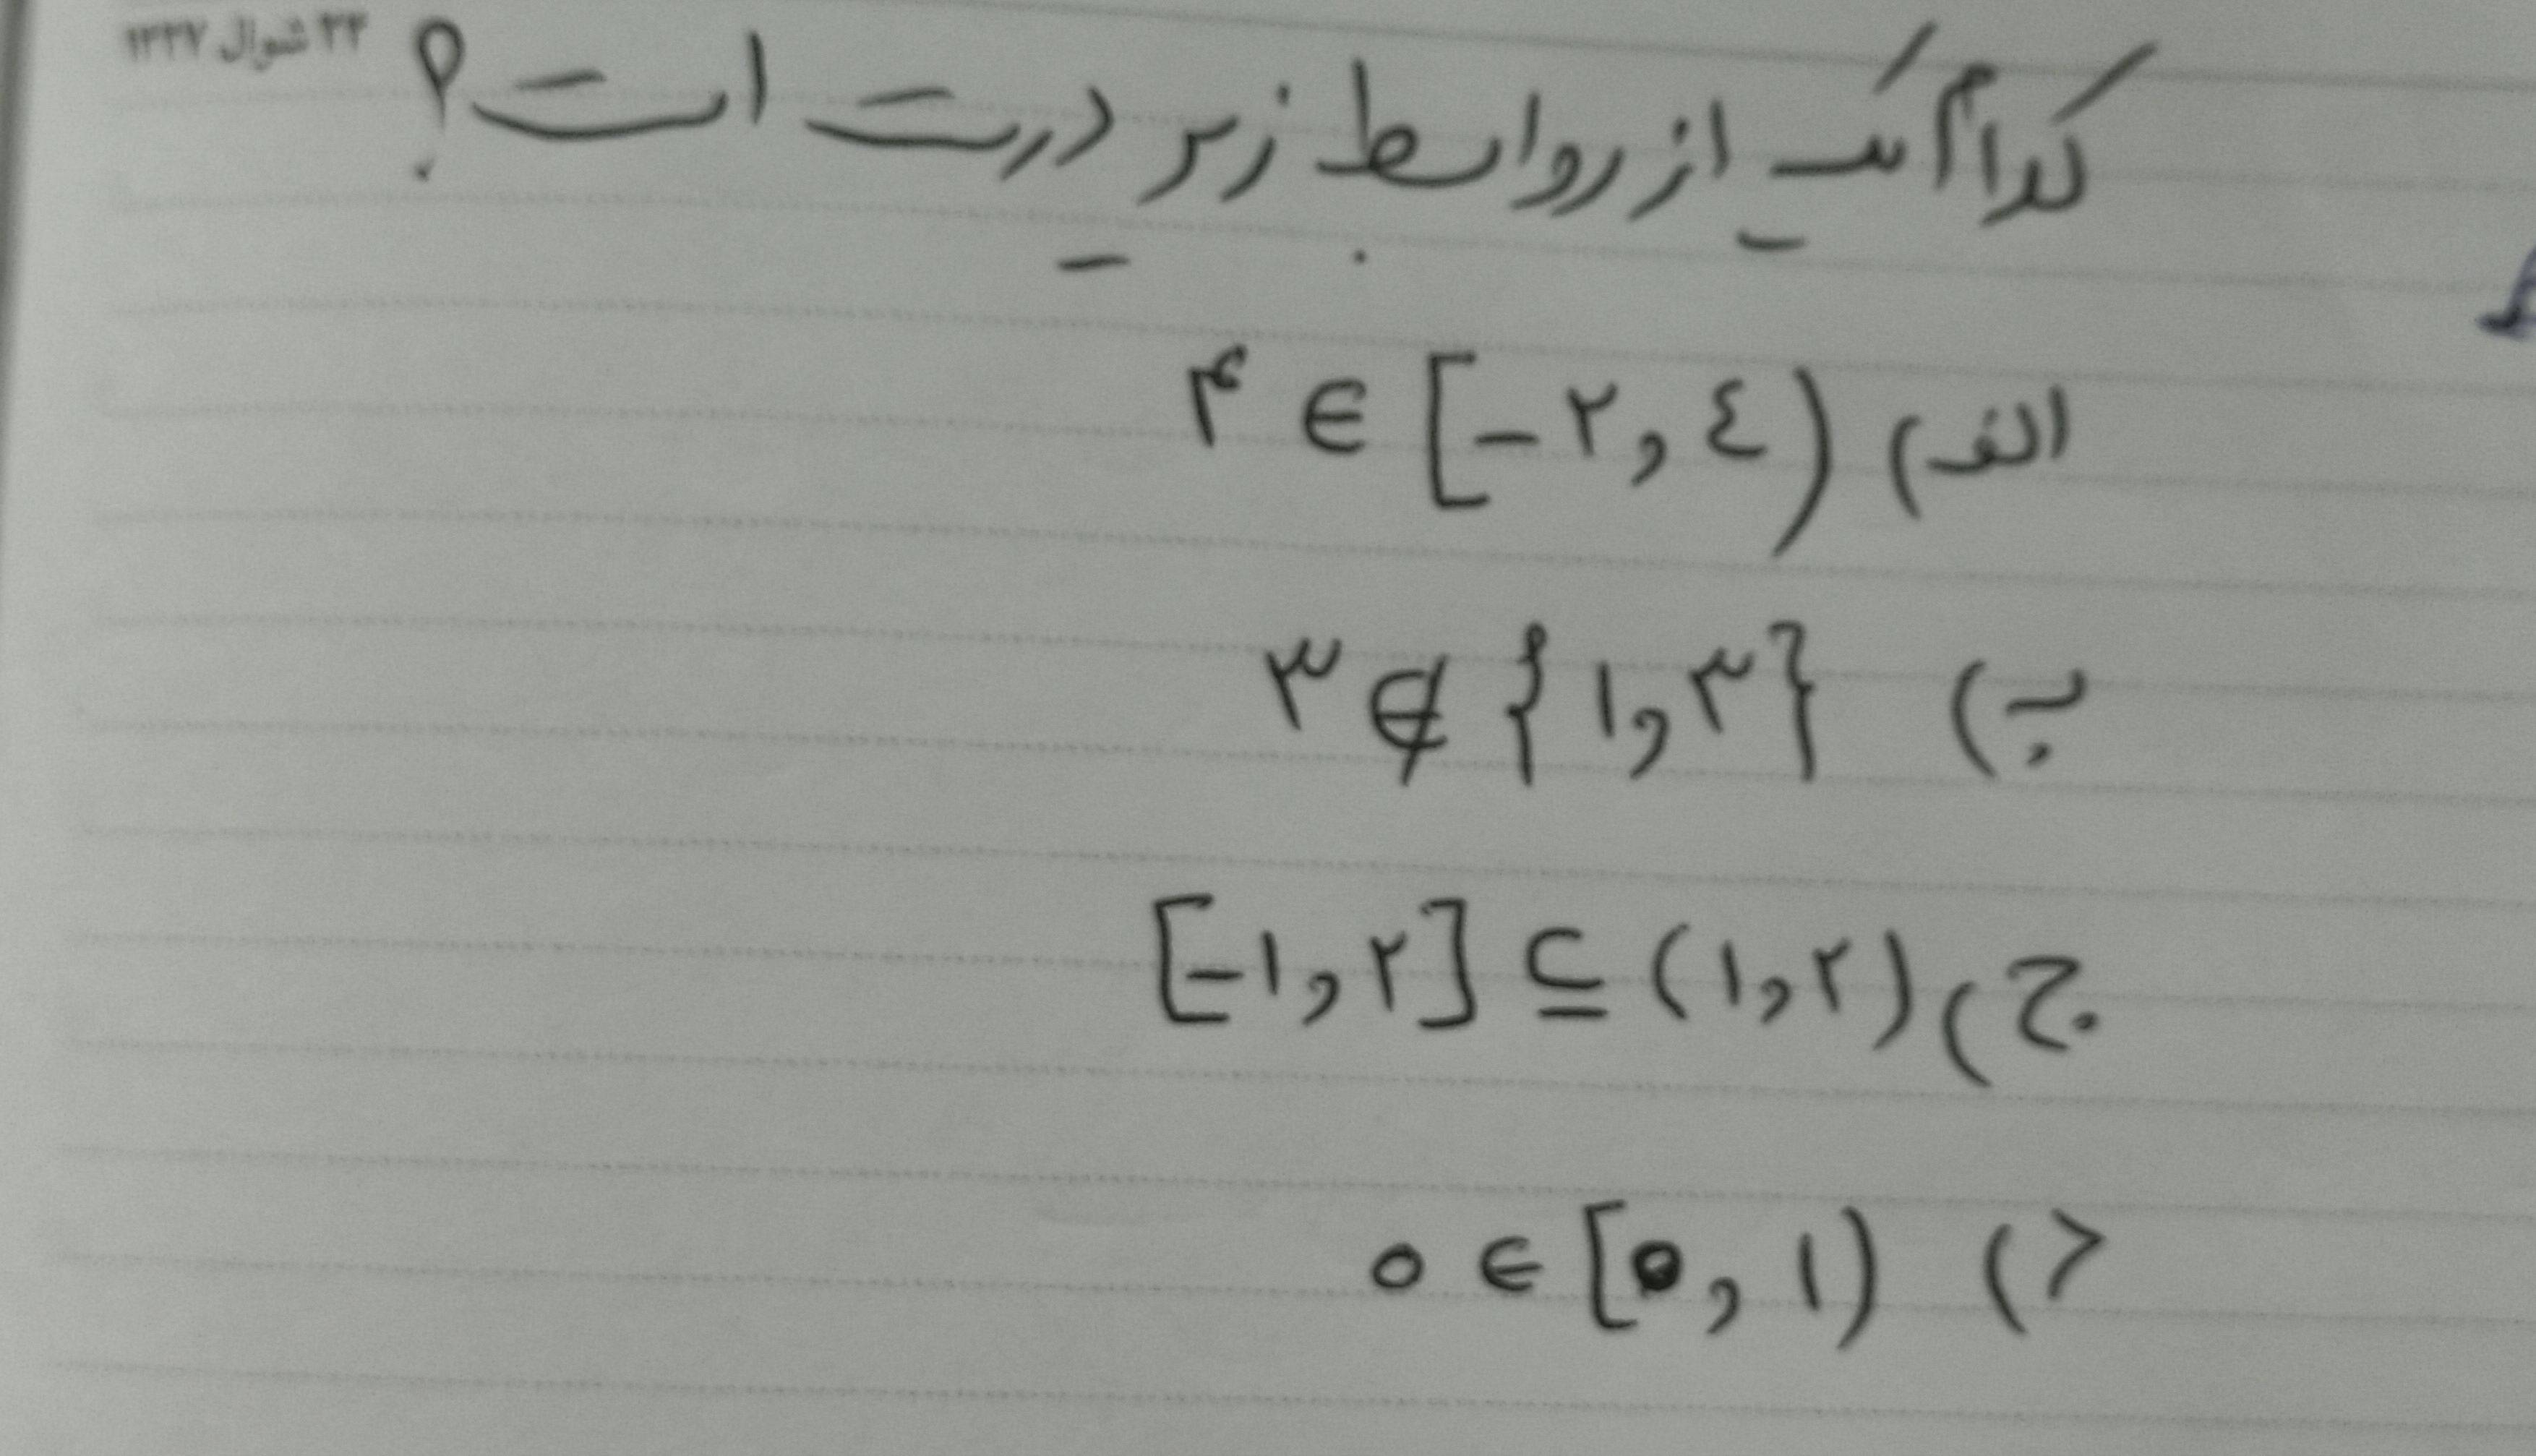 ۲۳ شوال ۱۴۳۷
کدام یک از روابط زیر درست است؟
الف) ۴ ∈ [-۲, ٤)
ب) ۳ ∉ {۱, ۳}
ج) [-۱, ۲] ⊆ (۱, ۲)
د) ۰ ∈ [۰, ۱)